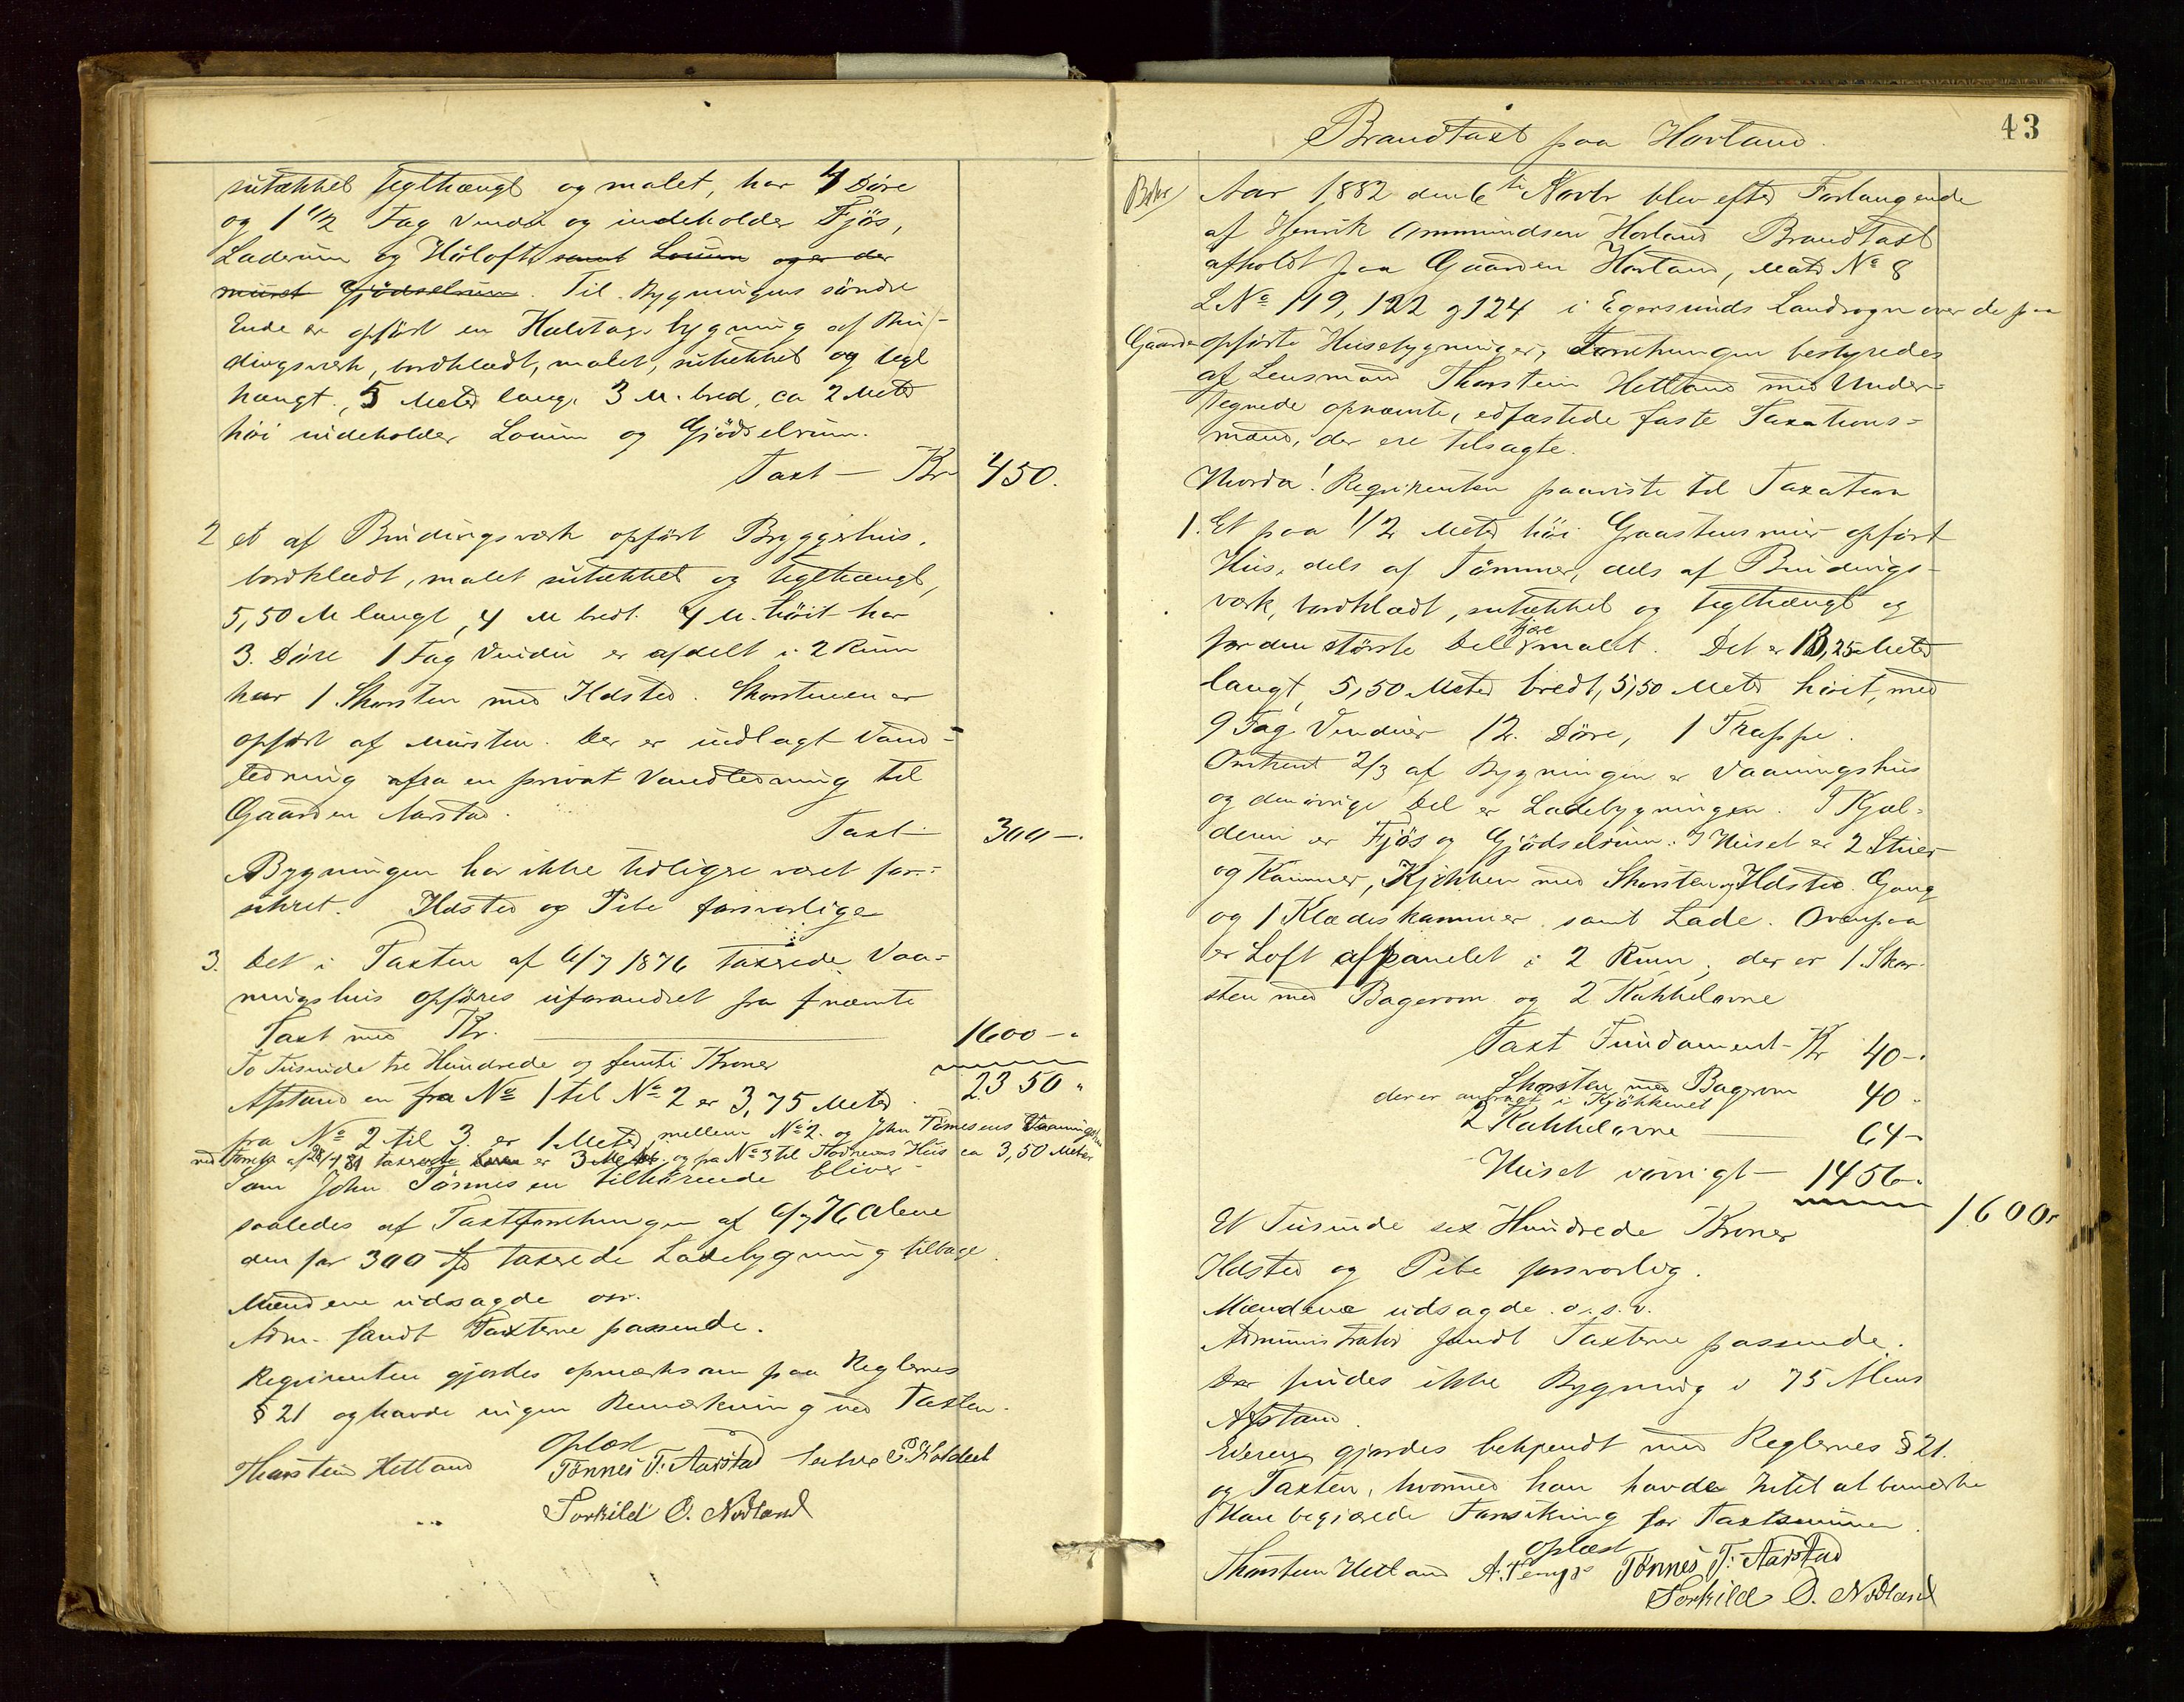 sutækket teglhængt og malet, har 4 Döre
og 1 1/2 Fag Vindu og indeholder Fjös,
Laderum og Höloft samt Louum og er der
muret Gjödselrum. Til Bygningens söndre
Ende er opfört en Halvtagsbygning af Bin-
dingsværk, bordklædt, malet, sutækket og tegl
hængt, 5 Meter lang, 3 M. bred, ca 2 Meter
höi indeholder Louum og Gjödselrum.
Taxt — Kr 450.
2 et af Bindingsværk opfört Bryggerhus,
bordklædt, malet sutækket og teglhængt,
5,50 M langt, 4 M bredt. 4 M. höit har
3. Döre 1 Fag Vindu er afdelt i 2 Rum
har 1 Skorsten med Ildsted. Skorstenen er
opfört af Mursten. Der er indlagt Vand-
ledning afra en privat Vandledning til
Gaarden Aarstad.
Taxt 300 —.
Bygningen har ikke tidligere været for-
sikret. Ildsted og Pibe forsvarlige
3. Det i Taxten af 6/7 1876 taxerede Vaa-
ningshus opföres uforandret fra fnævnte
Taxt med Kr. 1600 —.
To Tusinde tre Hundrede og femti Kroner
2350 "
Afstand en fra No 1 til No 2 er 3,75 Meter.
fra No 2 til 3. er 1 Meter, mellem No 2. og John Tönnesens Vaaningshus
er 3 Meter. og fra No 3 til Hus ca 3,50 Meter
Som John Tönnesen tilhörende bliver
saaledes af Taxtforretningen af 6/7 76 alene
den for 300 Spd taxerede Ladebygning tilbage.
Mændene udsagde osv.
Adm. fandt Taxterne passende.
Reqvirenten gjordes opmærksom paa Reglernes
§ 21 og havde ingen Bemærkning ved Taxten.
Oplæst
Thorstein Hetland Tönnes T. Aarstad
Torkild O. Nodland
43
Brandtaxt paa Hovland.
Aar 1882 den 6te Novbr blev efter Forlangende
af Henrik Ommundsen Hovland Brandtaxt
afholdt paa Gaarden Hovland, Matr No 8
LNo 119, 122 g 124 i Egersunds Landsogn over de paa
Gaarden opförte Husebygninger, Forretningen bestyredes
af Lensmand Thorstein Hetland med Under-
tegnede opnævnte, edfæstede faste Taxations-
mænd, der ere tilsagte.
Hvorda! Reqvirenten paaviste til Taxation
1. Et paa 1/2 Meter höi Graastensmur opfört
Hus, dels af Tömmer, dels af Bindings-
værk, bordklædt, sutækket og teglhængt og
for den störste Del malet. Det er 13,25 Meter
langt, 5,50 Meter bredt, 5,50 Meter höit, med
9 Fag Vinduer 12. Döre, 1 Trappe.
Omtrent 2/3 af Bygningen er Vaaningshus
og den övrige Del er Ladebygningen. I Kjæl-
deren er Fjös og Gjödselrum. I Huset er 2 Stuer
og Kammer, Kjökken med Skorsten og Ildsted. Gang
og 1 Klædeskammer samt Lade. Ovenpaa
er Loft afpanelet i 2 Rum, der er 1 Skor-
sten med Bagerovn og 2 Kakkelovne
Taxt Fundament - Kr 40 -.
Skorsten med Bagerovn 40 .
der er anbragt i Kjökkenet
2 Kakkelovne — 64 -
Huset övrigt — 1456 -.
Et Tusinde sex Hundrede Kroner 1600,
Ildsted og Pibe forsvarlig.
Mændene udsagde o. s. v.
Administrator fandt Taxterne passende.
Der findes ikke Bygning i 75 Alens
Afstand.
Eieren gjordes bekjendt med Reglernes § 21.
og Taxten, hvorved han havde Intet at bemærke
Han begjærede Forsikring for Taxtsummen.
Oplæst
Thorstein Hetland Tönnes T. Aarstad
Torkild O. Nodland